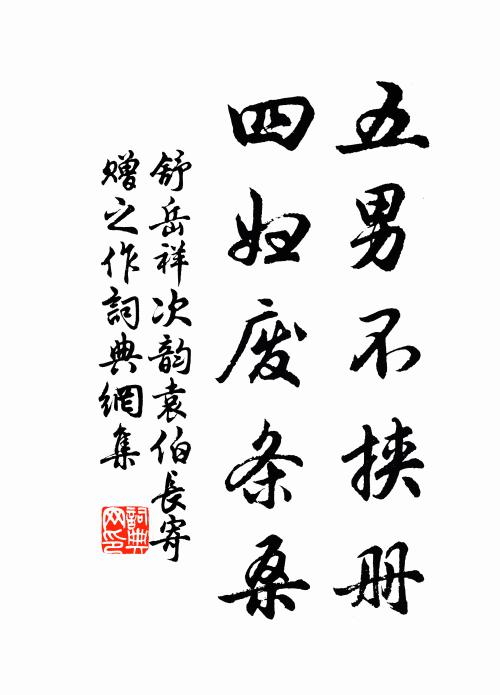 五男不挟册
四妇废条桑
舒岳祥次韵袁伯長寄
赠之作詞典網集
詞典
网印